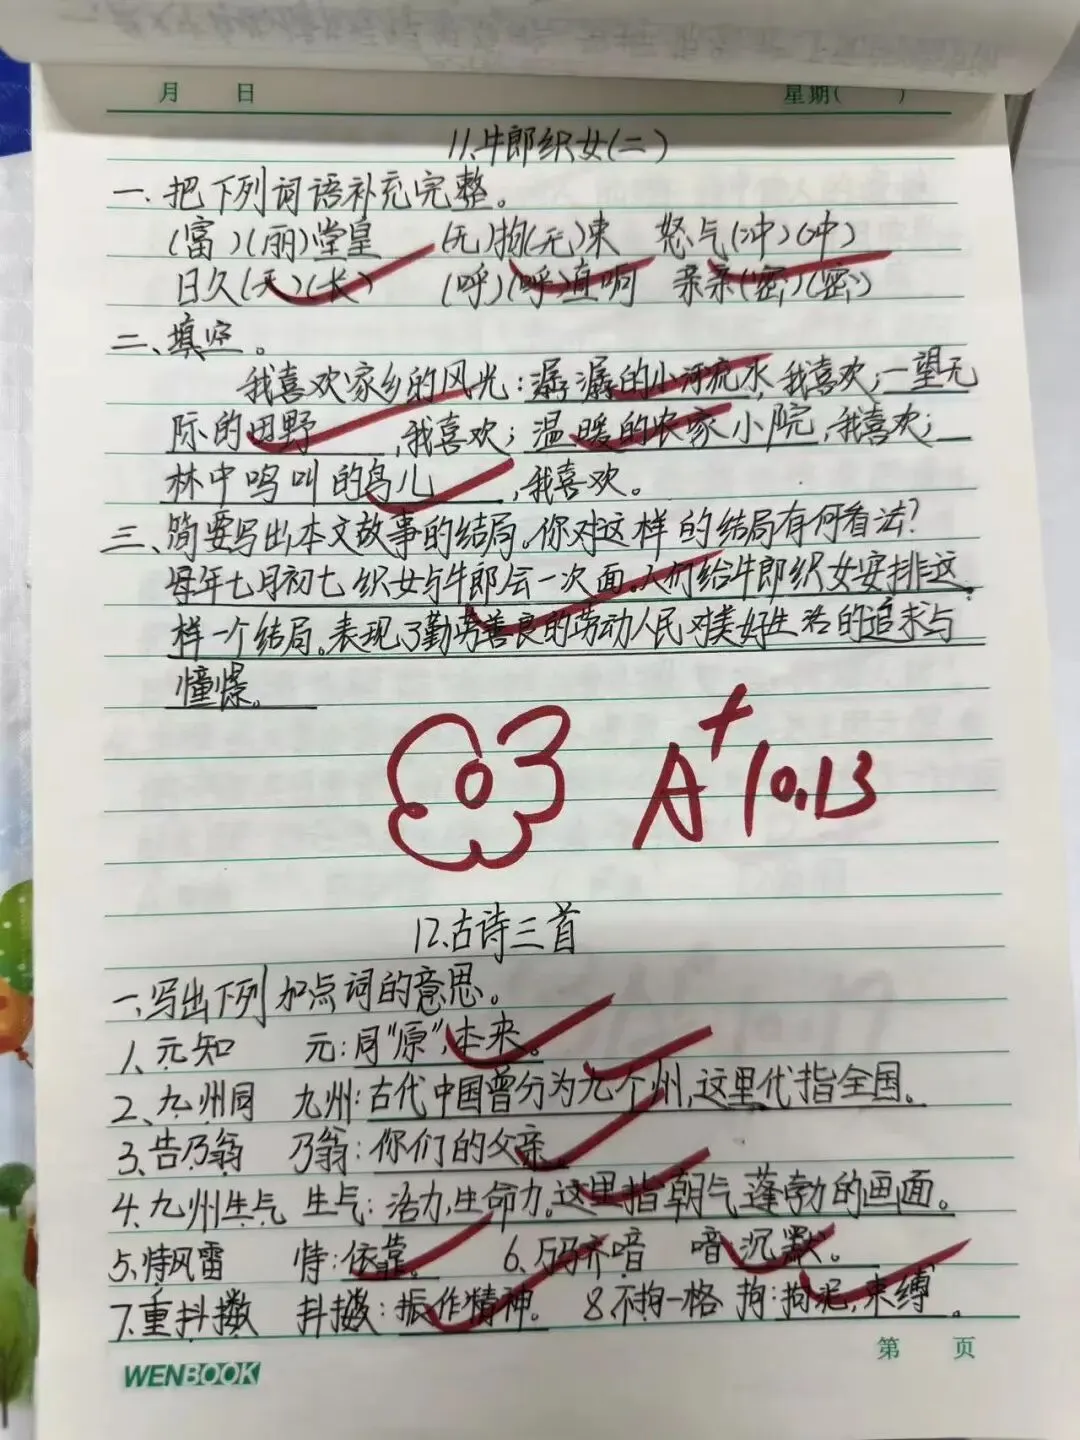 月 日 星期( )
11.牛郎织女(二)
一.把下列词语补充完整。
(富)(丽)堂皇 (无)拘(无)束 怒气(冲)(冲)
日久(天)(长) (呼)(呼)直响 亲亲(密)(密)
二、填空。
我喜欢家乡的风光:潺潺的小河流水,我喜欢;一望无
际的田野,我喜欢;温暖的农家小院,我喜欢;
林中鸣叫的鸟儿,我喜欢。
三、简要写出本文故事的结局。你对这样的结局有何看法?
每年七月初七织女与牛郎会一次面。人们给牛郎织女安排这
样一个结局。表现了勤劳善良的劳动人民对美好生活的追求与
憧憬。
A+ 10.13
12.古诗三首
一.写出下列加点词的意思。
1.元知 元:同"原",本来。
2、九州同 九州:古代中国曾分为九个州,这里代指全国。
3.告乃翁 乃翁:你们的父亲
4.九州生气 生气:活力,生命力。这里指朝气蓬勃的画面。
5.恃风雷 恃:依靠。 6.万马齐喑 喑:沉默。
7.重抖擞 抖擞:振作精神。 8.不拘一格 拘:拘泥,束缚。
第 页
WENBOOK